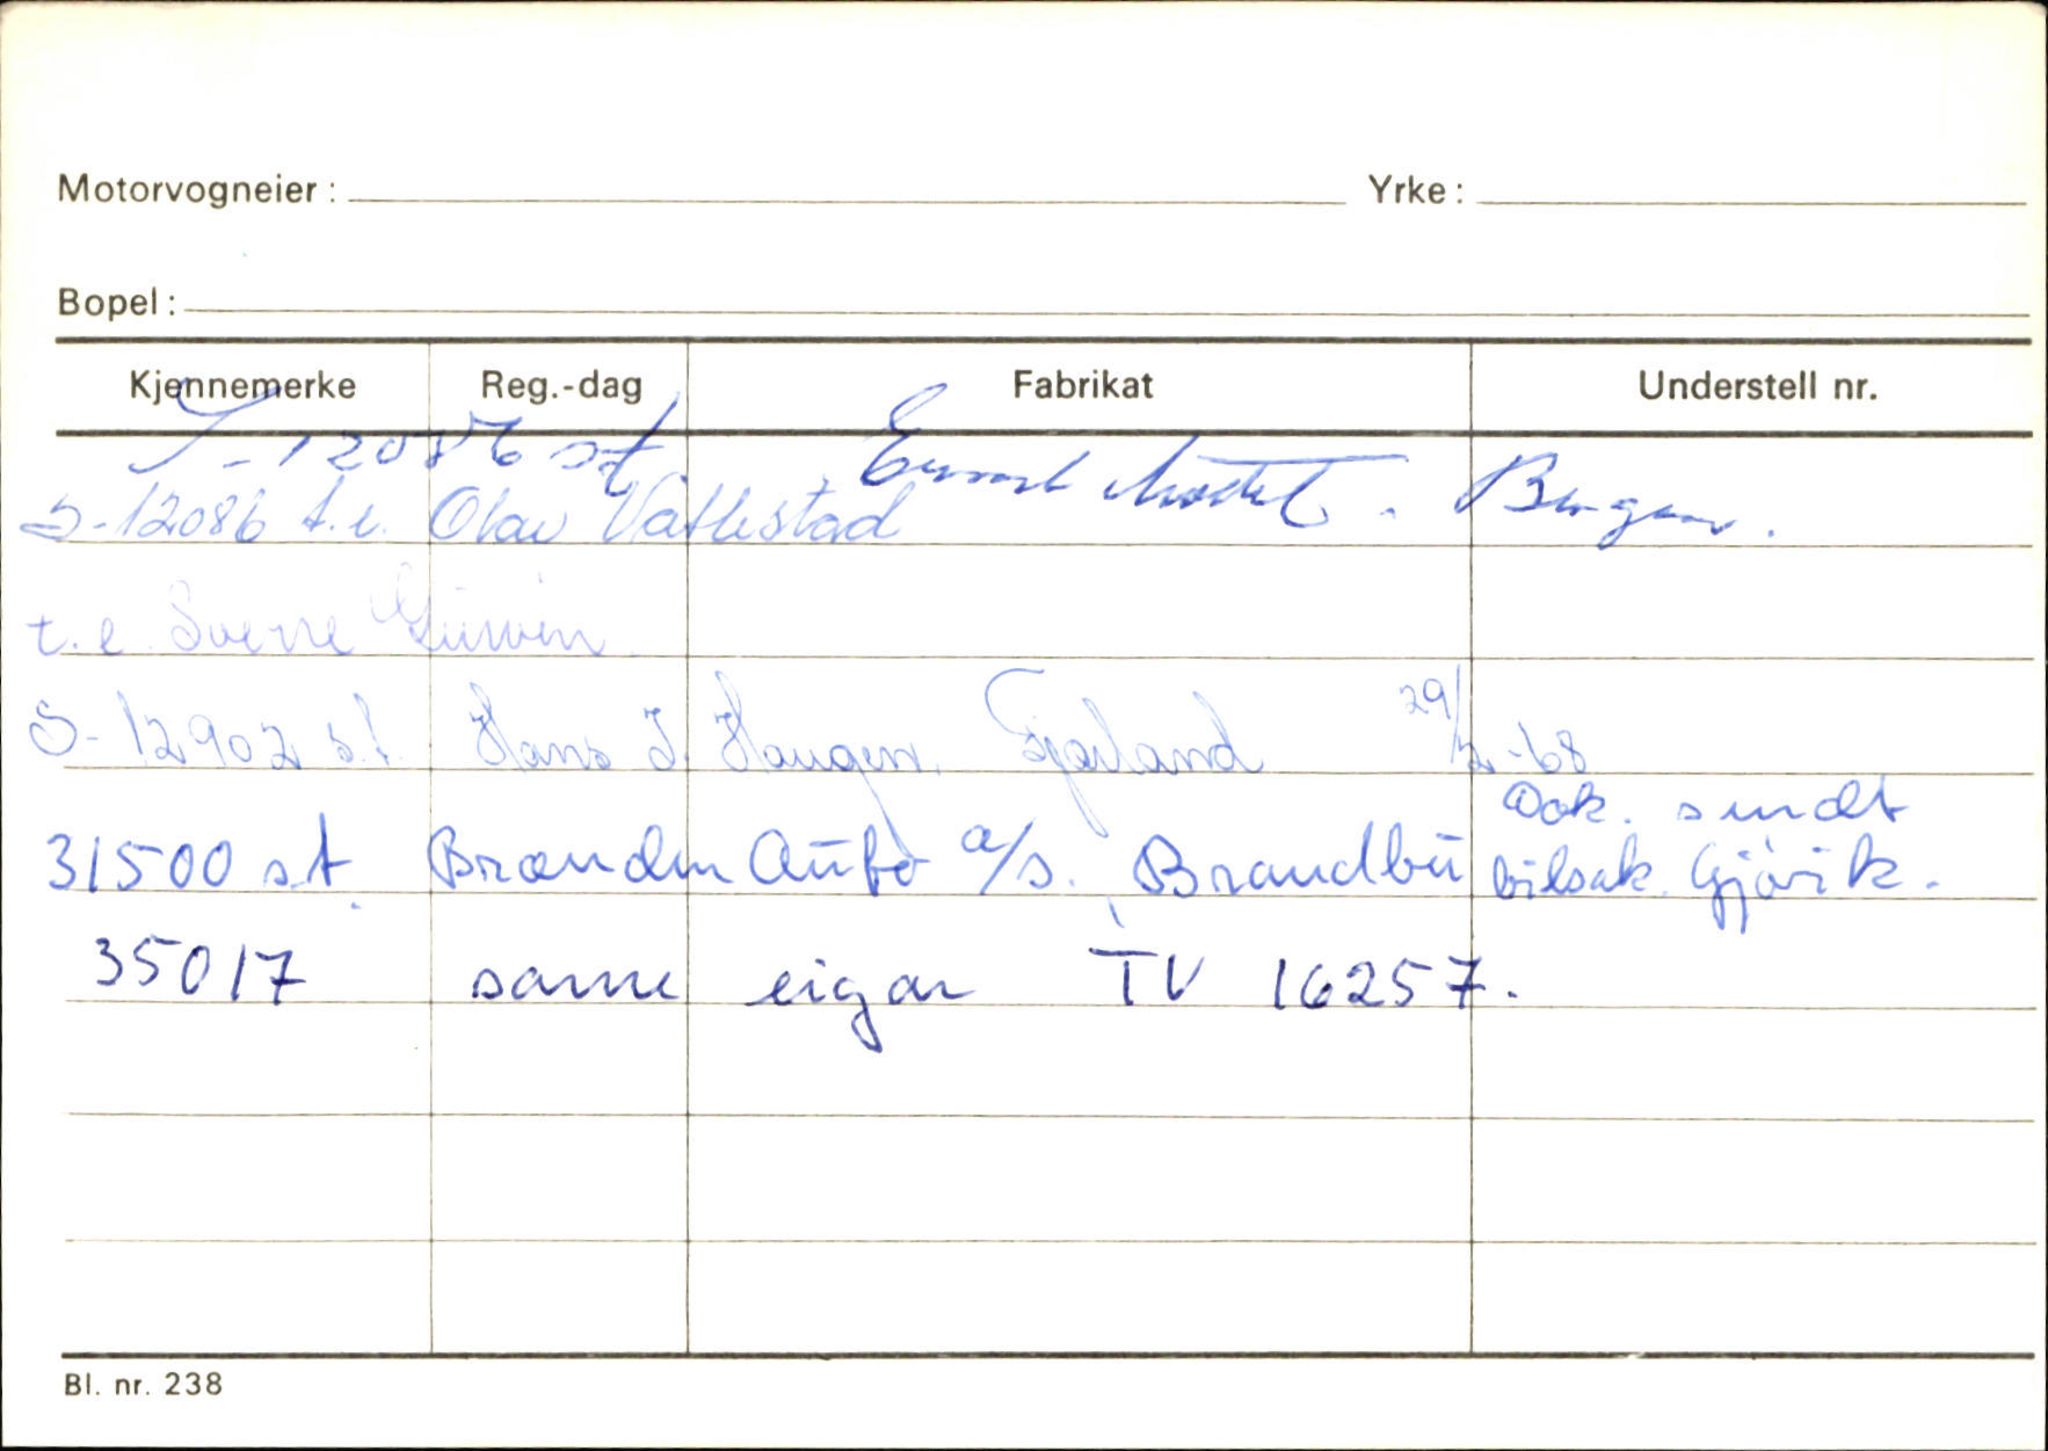 Motorvogneier: Yrke:
Bopel:
Kjennemerke Reg.-dag Fabrikat Understell nr.
S-12086 st Bergen.
S-12086 t.e. Olav Vatlestad
t.e. Sverre
S-12902 s.t. Hans J. Haugen. Fjærland 29/2-68
Dok. sendt
31500 s.t. Auto a/s. Brandbu bilsak. Gjøvik.
35017 same eigar TV 16257.
Bl. nr. 238